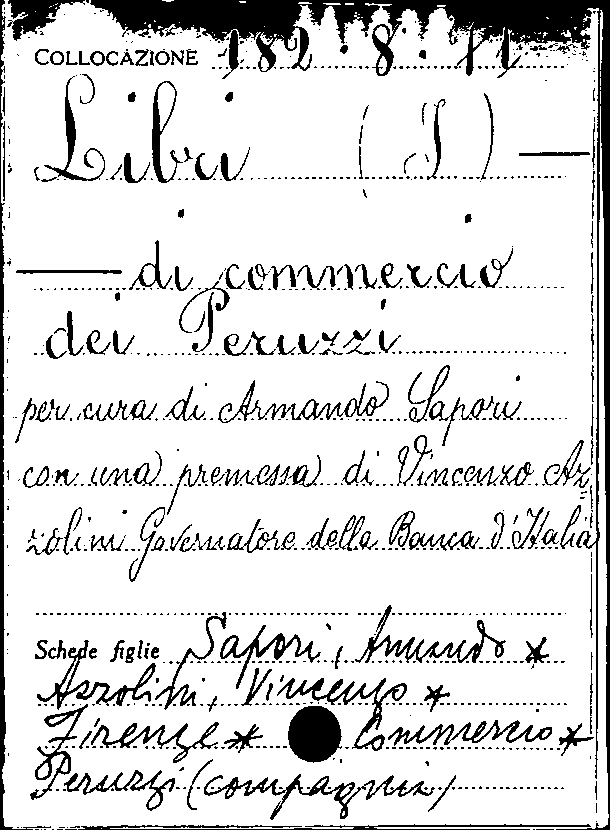 COLLOCAZIONE 182.8.11
Libri (I) —
— di commercio
dei Peruzzi
per cura di Armando Sapori
con una premessa di Vincenzo Az=
zolini Governatore della Banca d'Italia
Schede figlie Sapori, Armando *
Azzolini, Vincenzo *
Firenze * Commercio *
Peruzzi (compagnia)